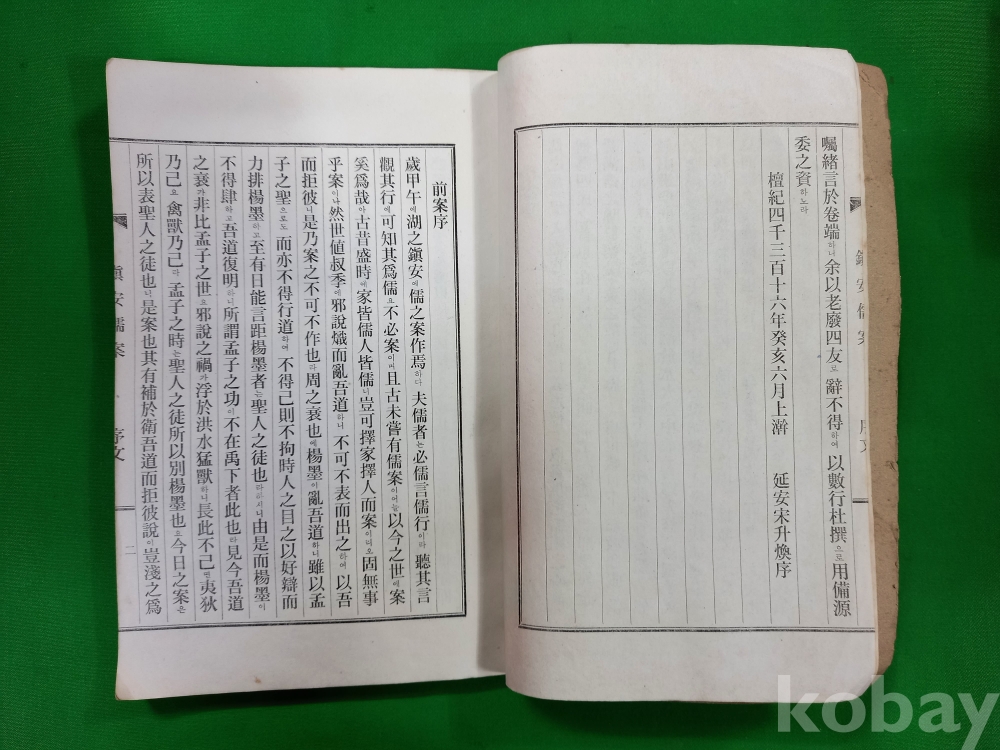 囑緖言於卷端하니余以老廢四友로辭不得하여以數行杜撰으로用備源
委之資하노라
檀紀四千三百十六年癸亥六月上澣　延安宋升煥序
鎭安儒案　序文
前案序
歲甲午에湖之鎭安에儒之案作焉하다夫儒者는必儒言儒行이라聽其言
觀其行에可知其爲儒요不必案이며且古未嘗有儒案이어늘以今之世에案
奚爲哉아古昔盛時에家皆儒人皆儒니豈可擇家擇人而案이리오固無事
乎案이나然世値叔季에邪說熾而亂吾道하니不可不表而出之하여以吾
而拒彼니是乃案之不可不作也라周之衰也에楊墨이亂吾道하니雖以孟
子之聖으로도而亦不得行道하여不得已則不拘時人之目之以好辯而
力排楊墨하고至有日能言距楊墨者는聖人之徒也라하시니由是而楊墨이
不得肆하고吾道復明하니所謂孟子之功이不在禹下者此也라見今吾道
之衰가非比孟子之世요邪說之禍가浮於洪水猛獸하니長此不己면夷狄
乃己요禽獸乃己라孟子之時는聖人之徒所以別楊墨也요今日之案은
所以表聖人之徒也니是案也其有補於衛吾道而拒彼說이豈淺之爲
鎭安儒案　序文　二
kobay